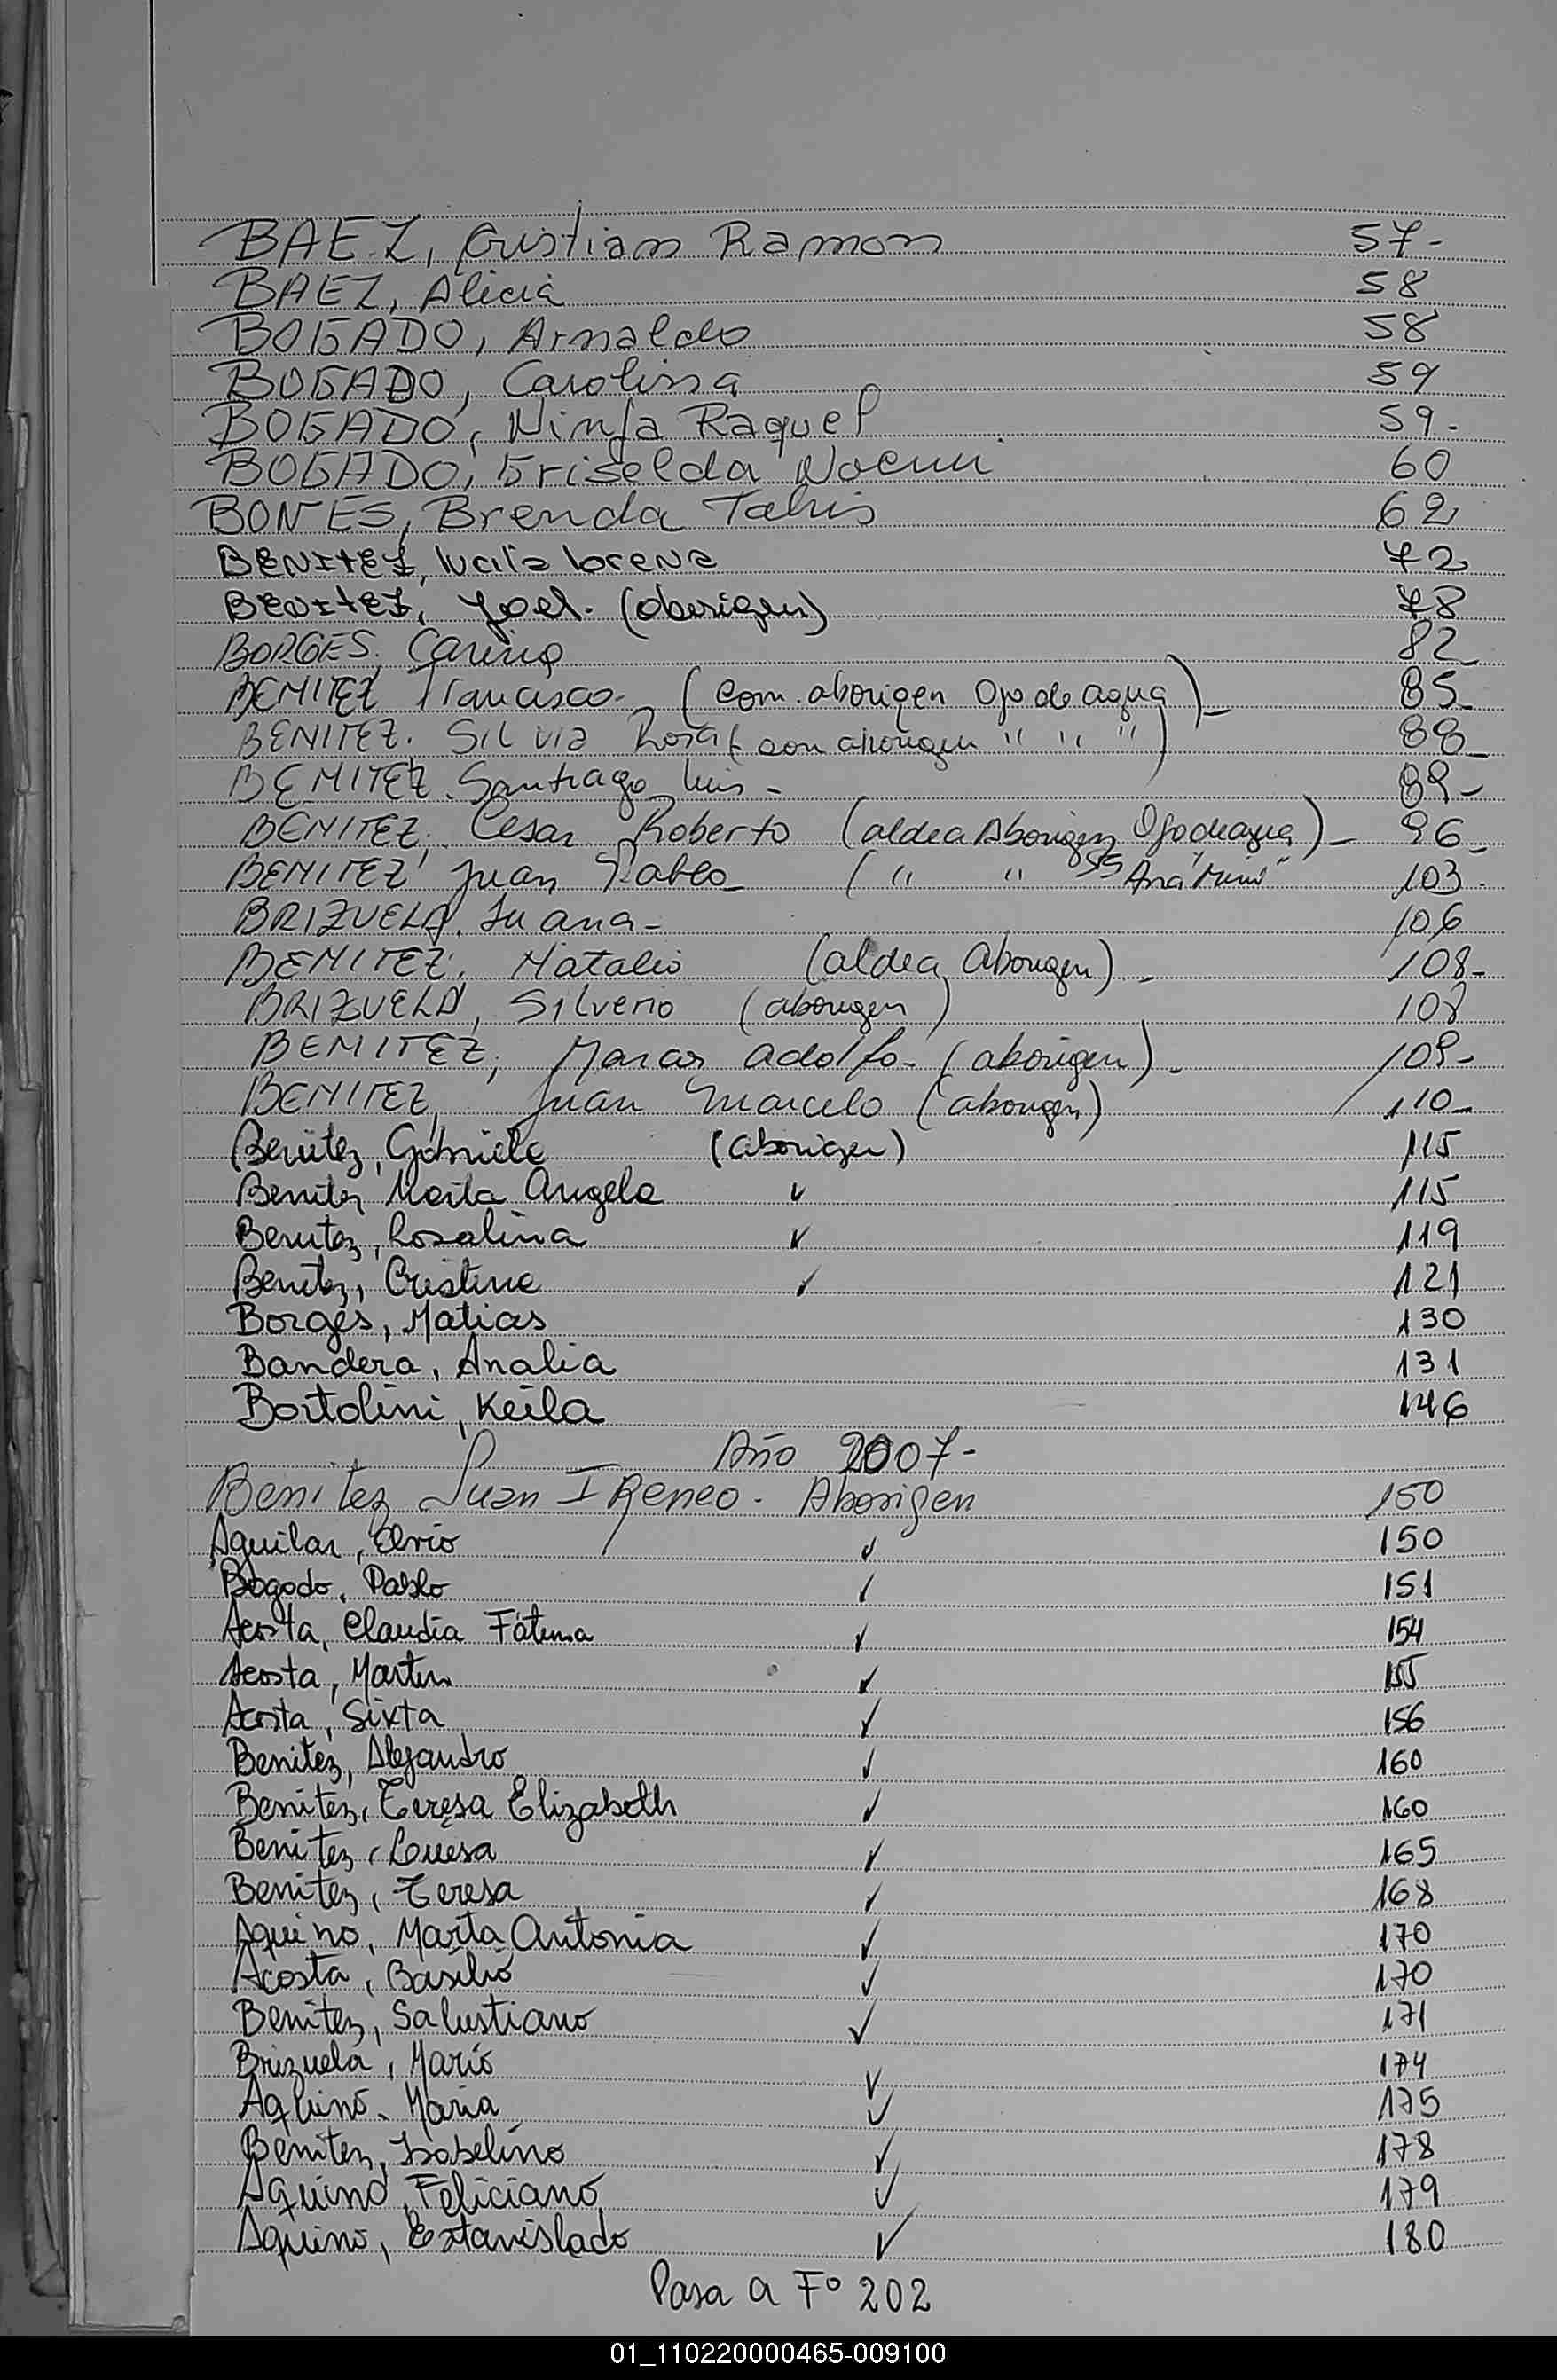 BAEZ, Cristian Ramon 57-
BAEZ, Alicia 58
BOGADO, Arnaldo 58
BOGADO, Carolina 59
BOGADO, Ninfa Raquel 59-
BOGADO, Griselda Noemi 60
BONES, Brenda Tahis 62
BENITEZ, Lucila Lorena 72
BENITEZ, Joel. (aborigen) 78
BORGES, Carina 82-
BENITEZ Francisco- (com. aborigen Ojo de agua)- 85-
BENITEZ. Silvia Rosa (com aborigen " " ") 88-
BENITEZ. Santiago Luis - 89-
BENITEZ, Cesar Roberto (aldea Aborigen Ojo de agua)- 96-
BENITEZ Juan Pablo- ( " " 103-
BRIZUELA. Juana- 106
BENITEZ, Natalio (aldea Aborigen)- 108-
BRIZUELA, Silverio (aborigen) 108
BENITEZ, Marcos adolfo- (aborigen)- 109-
BENITEZ, Juan Marcelo (aborigen) 110-
Benitez, Gabriela (aborigen) 115
Benitez, Marta Angela ✓ 115
Benitez, Rosalina ✓ 119
Benitez, Cristina ✓ 121
Borges, Matias 130
Bandera, Analia 131
Bortolini, Keila 146
Año 2007-
Benitez Juan IReneo. Aborigen 150
Aguilar, Elvio ✓ 150
Bogado, Pablo ✓ 151
Acosta, Claudia Fátima ✓ 154
Acosta, Martin ✓ 155
Acosta, Sixta ✓ 156
Benitez, Alejandro ✓ 160
Benitez, Teresa Elizabeth ✓ 160
Benitez, Luisa ✓ 165
Benitez, Teresa ✓ 168
Aquino, Marta Antonia ✓ 170
Acosta, Basilio ✓ 170
Benitez, Salustiano ✓ 171
Brizuela, Mario ✓ 174
Aquino. Maria ✓ 175
Benitez, Isabelino ✓ 178
Aquino, Feliciano ✓ 179
Aquino, Estanislado ✓ 180
Pasa a Fº 202
01_110220000465-009100